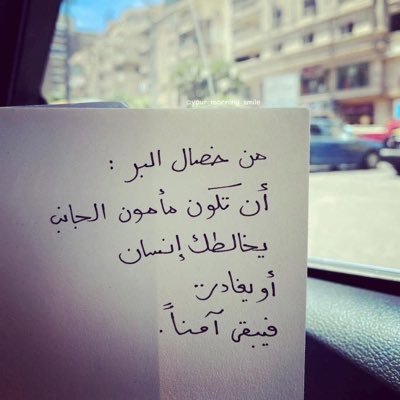 @your_morning_smile
من خصال البر :
أن تكون مأمون الجانب
يخالطك إنسان
أو يغادرك
فيبقى آمناً .